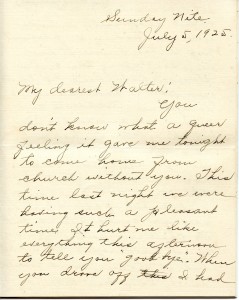 Sunday Nite.
July 5, 1925.
My dearest Walter:
You
don't know what a queer
feeling it gave me tonight
to come home from
church without you. This
time last night we were
having such a pleasant
time. It hurt me like
everything this afternoon
to tell you "good bye". When
you drove off this I had